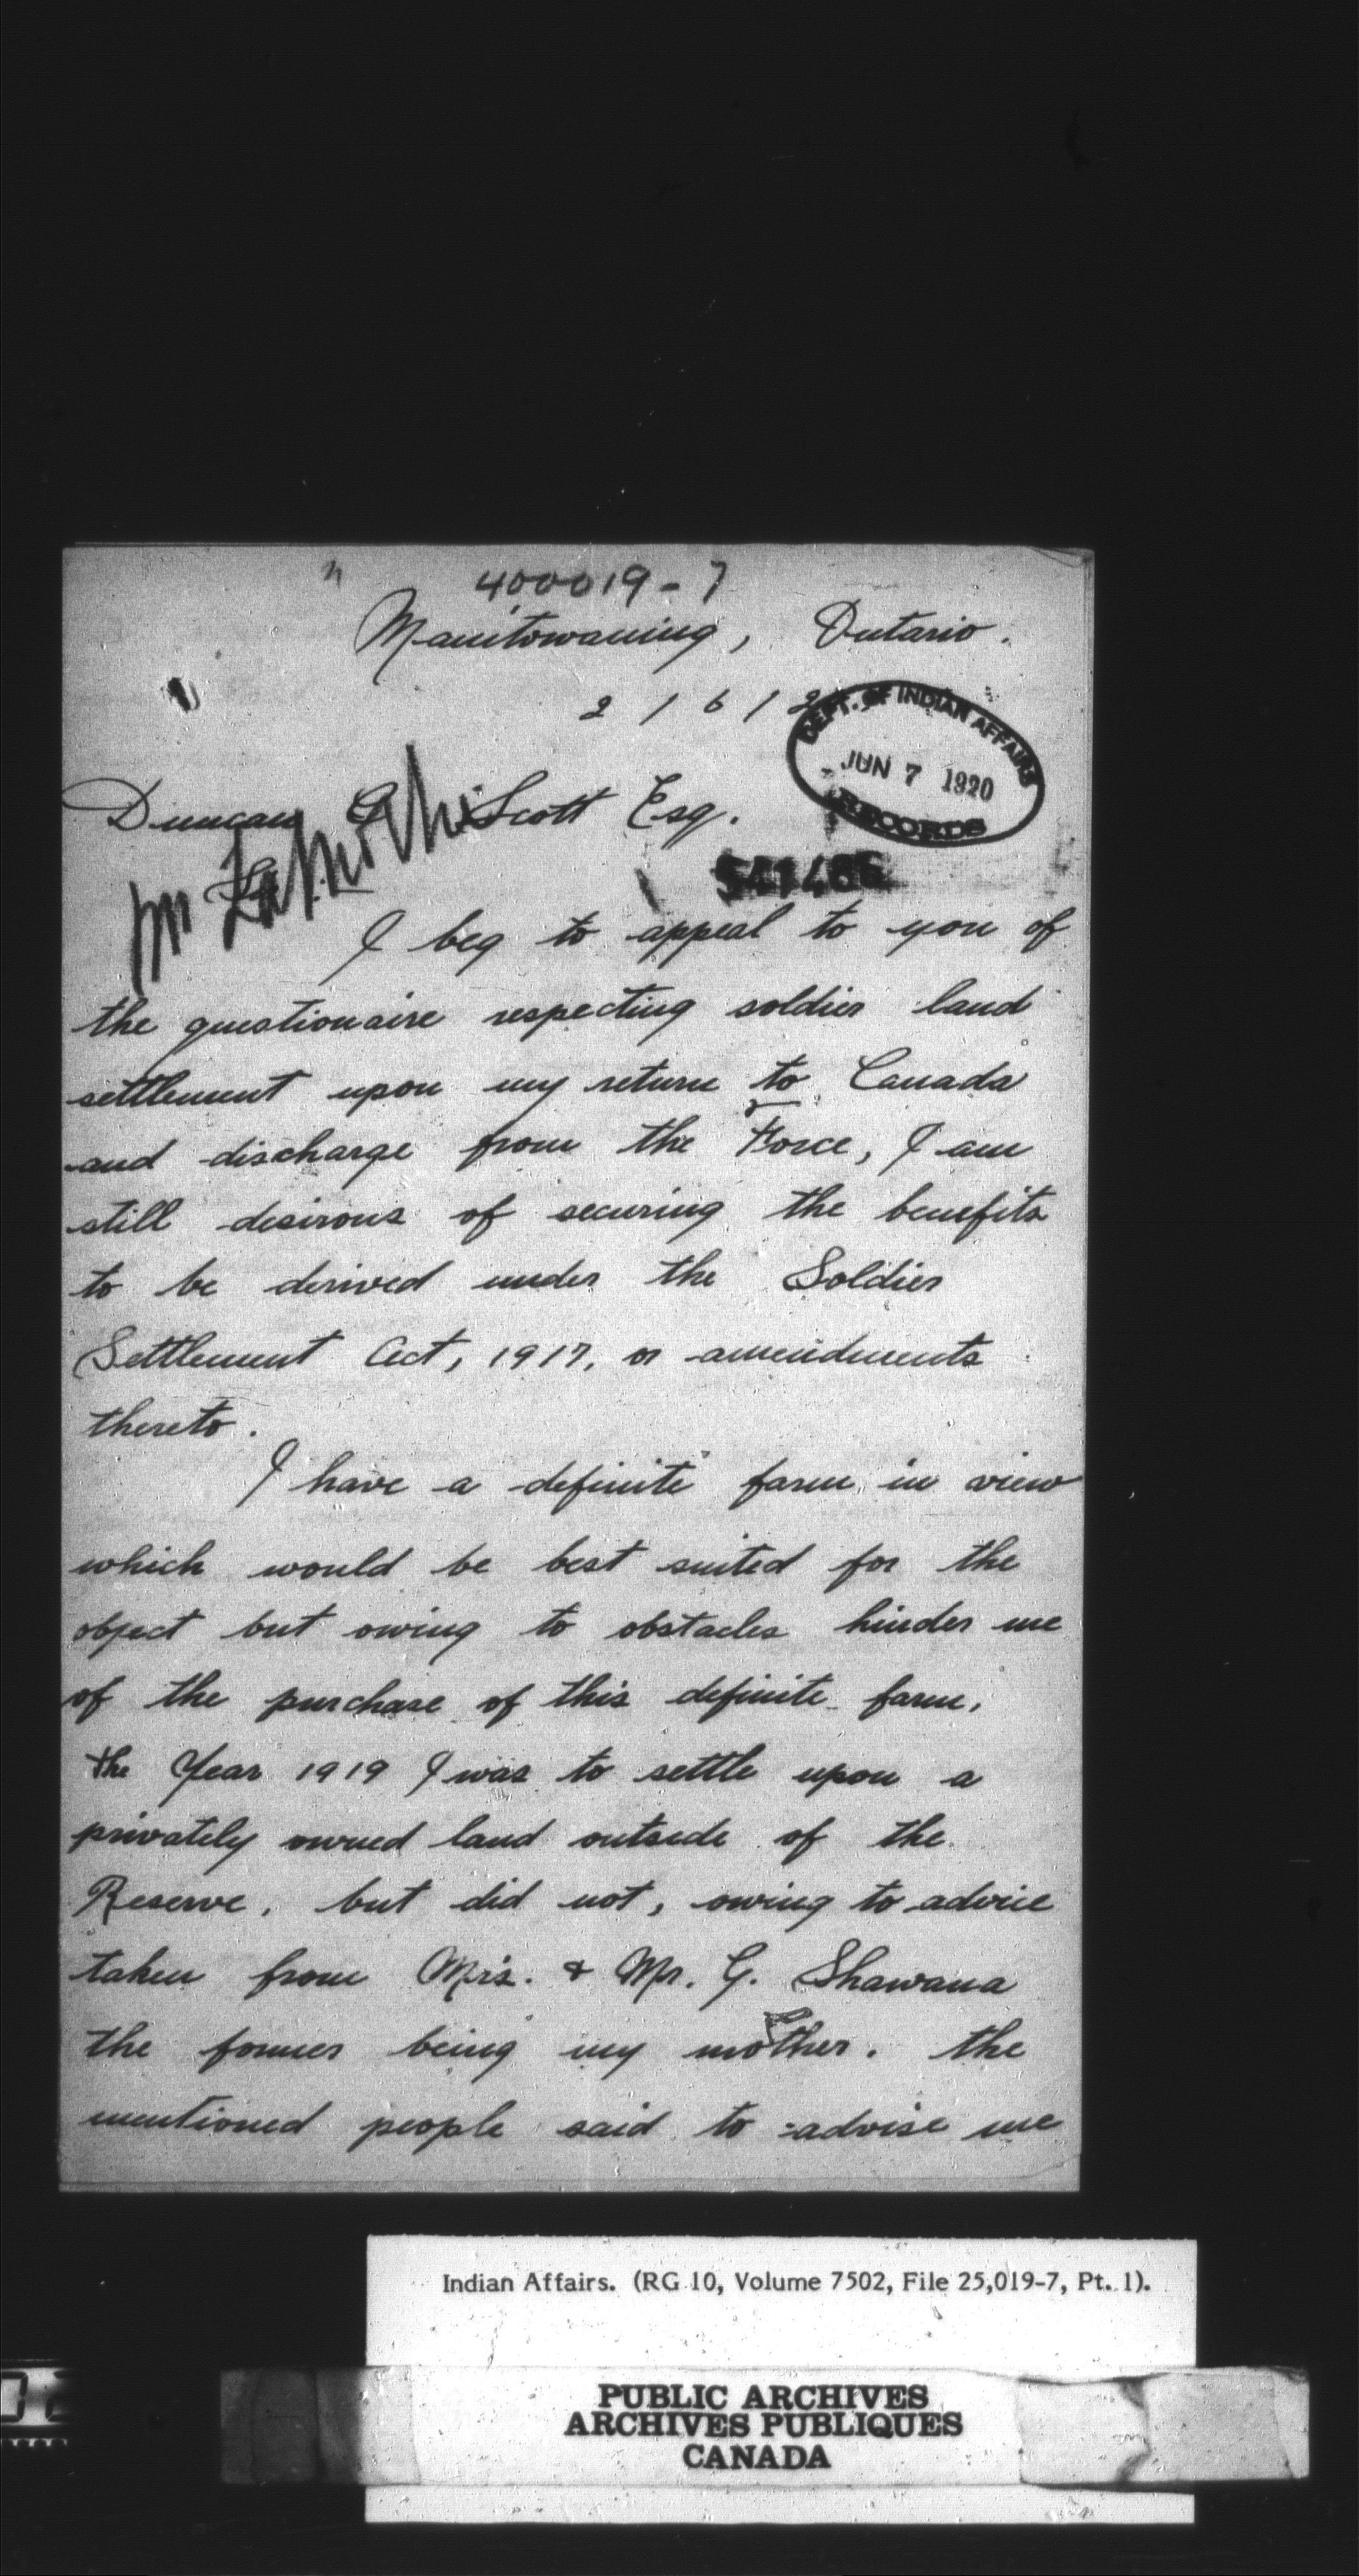 400019-7
Manitowaning, Ontario.
2 / 6 / 2
DEPT. OF INDIAN AFFAIRS
JUN 7 1920
RECORDS
Duncan C. Scott Esq.
541486
I beg to appeal to you of
the questionaire respecting soldier land
settlement upon my return to Canada
and discharge from the Force, I am
still desirous of securing the benefits
to be derived under the Soldier
Settlement Act, 1917, or amendments
thereto.
I have a definite farm in view
which would be best suited for the
object but owing to obstacles hinder me
of the purchase of this definite farm,
the Year 1919 I was to settle upon a
privately owned land outside of the
Reserve, but did not, owing to advice
taken from Mrs. & Mr. G. Shawana
the former being my mother. the
mentioned people said to advise me
Indian Affairs. (RG 10, Volume 7502, File 25,019-7, Pt. 1).
PUBLIC ARCHIVES
ARCHIVES PUBLIQUES
CANADA